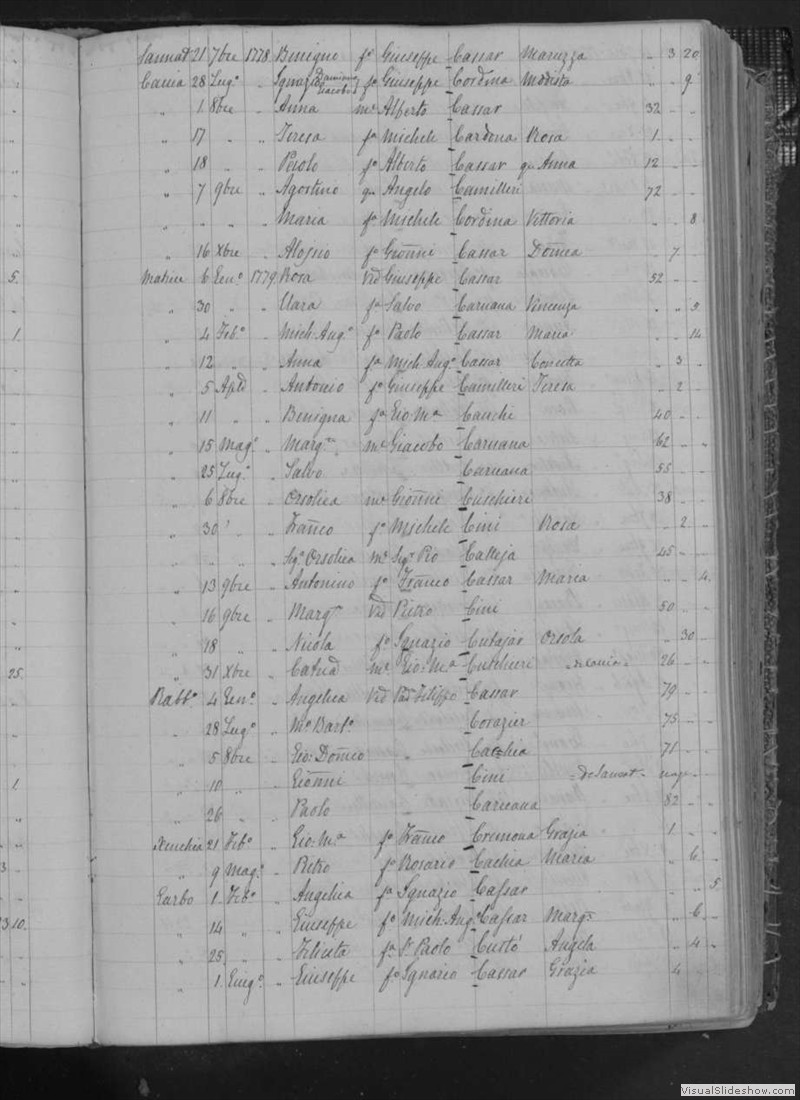 5.
1.
25.
1.
3
13 10.
Sannat 21 7bre 1778 Benigno fo Giuseppe Cassar Maruzza 3 20
Caccia 28 Lugo " Ignazio Damiano Giacobo fo Giuseppe Cordina Modesta " 9
" 1 8bre " Anna me Alberto Cassar 32
" 17 " " Teresa fa Michele Cardona Rosa 1
" 18 " " Paolo fo Alberto Cassar qm Anna 12
" 7 9bre " Agostino qm Angelo Camilleri 72
" " " " Maria fa Michele Cordina Vittoria 8
" 16 Xbre " Aloysio fo Gionni Cassar Domca 7
6 Geno 1779 Rosa Vid Giuseppe Cassar 52
" 30 " " Clara fa Salvo Caruana Vincenza " " 5
" 4 Febo " Mich: Ango fo Paolo Cassar Maria " 14
" 12 " " Anna fa Mich Ango Cassar Concetta 3
" 5 Aple " Antonio fo Giuseppe Camilleri Teresa " 2
" 11 " " Benigna fa Gio Ma Cauchi 40
" 15 Mago " Margta me Giacobo Caruana 62
" 25 Lugo " Salvo Caruana 55
" 6 8bre " Orsolica me Gionni Cuschieri 38
" 30 " " Franco fo Michele Cini Rosa " 2
" " " Siga Orsolica me Sigr Pio Calleja 45
" 13 9bre " Antonino fo Franco Cassar Maria " 4
" 16 9bre " Margta Vid Pietro Cini 50
" 18 " " Nicola fo Ignazio Cutajar Orsola " 30
" 31 Xbre " Catna me Gio: Ma Cutchieri 26
Rabbo 4 Geno " Angelica Vid Filippo Cassar 79
" 28 Lugo " Mo Barto Corazier 75
" 5 8bre " Gio: Domco " Cachia 71
" 10 " Gionni Cini
" 26 " Paolo " Caruana 82
Xeuchia 21 Febo " Gio: Ma fo Franco Cremona Grazia 1
" 9 Mago " Pietro fo Rosario Cachia Maria " 6
Garbo 1 Febo " Angelica fa Ignazio Cassar " " 5
" 14 " " Giuseppe fo Mich Ango Cassar Margta " 6
" 25 " " Felicita fa Paolo Custó Angela " 4
" 1 Giugo " Giuseppe fo Ignazio Cassar Grazia 4
VisualSlideshow.com